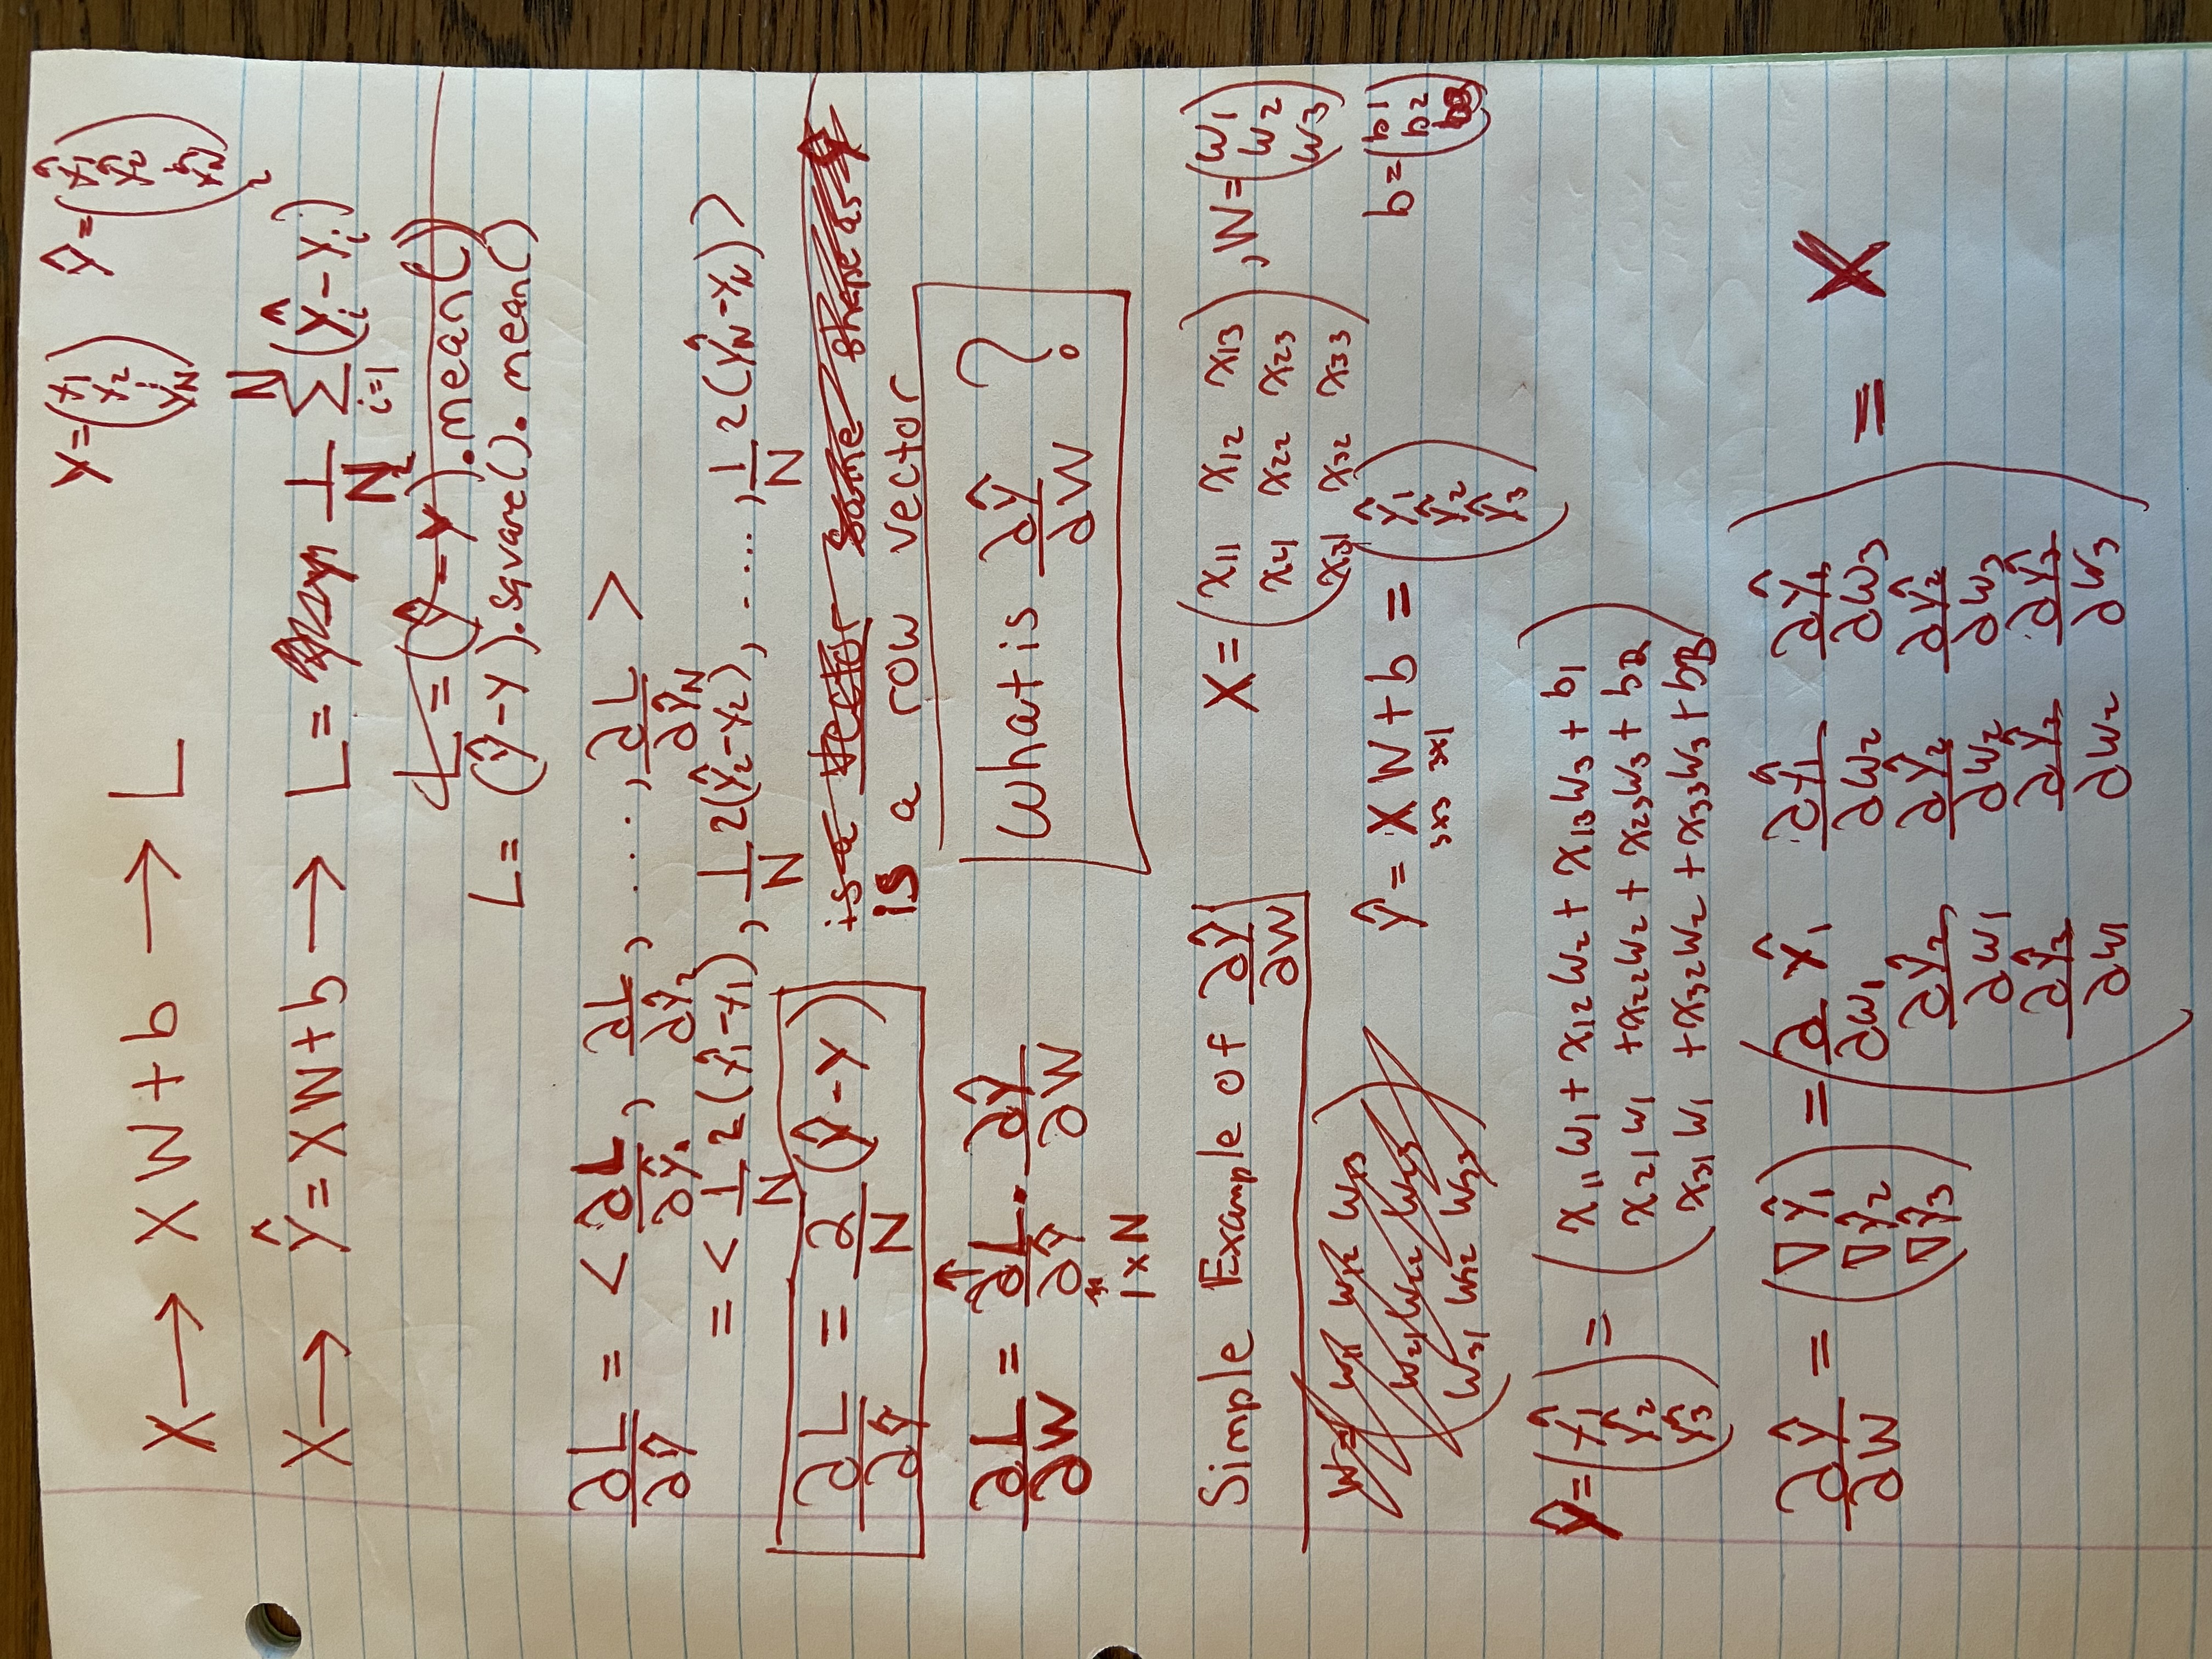 Y = (y₁ y₂ ⋮ y_N) Ŷ = (ŷ₁ ŷ₂ ⋮ ŷ_N)
X → XW + b → L
X → Ŷ = XW + b → L = 1/N Σ_{i=1}^{N} (Ŷ_i - Y_i)²
L = (Ŷ - Y)².mean()
L = (Ŷ - Y).square().mean()
∂L/∂Ŷ = < ∂L/∂ŷ₁, ∂L/∂ŷ₂, ...., ∂L/∂ŷ_N >
= < 1/N 2(ŷ₁ - y₁), 1/N 2(ŷ₂ - y₂), ....., 1/N 2(ŷ_N - y_N) >
∂L/∂Ŷ = 2/N (Ŷ - Y) is a vector same shape as Ŷ
is a row vector
∂L/∂W = ∂L/∂Ŷ · ∂Ŷ/∂W What is ∂Ŷ/∂W ?
1 x N
Simple Example of ∂Ŷ/∂W
X = (x₁₁ x₁₂ x₁₃
x₂₁ x₂₂ x₂₃
x₃₁ x₃₂ x₃₃), W = (w₁ w₂ w₃)
W = (w₁₁ w₁₂ w₁₃
w₂₁ w₂₂ w₂₃
w₃₁ w₃₂ w₃₃)
Ŷ = XW + b = (ŷ₁ ŷ₂ ŷ₃) b = (b1 b2 b3)
3x3 3x1
Ŷ = (ŷ₁ ŷ₂ ŷ₃) = (x₁₁w₁ + x₁₂w₂ + x₁₃w₃ + b₁
x₂₁w₁ + x₂₂w₂ + x₂₃w₃ + b₂
x₃₁w₁ + x₃₂w₂ + x₃₃w₃ + b₃)
∂Ŷ/∂W = (∇ŷ₁ ∇ŷ₂ ∇ŷ₃) = (∂/∂w₁ ŷ₁ ∂ŷ₁/∂w₂ ∂ŷ₁/∂w₃
∂ŷ₂/∂w₁ ∂ŷ₂/∂w₂ ∂ŷ₂/∂w₃
∂ŷ₃/∂w₁ ∂ŷ₃/∂w₂ ∂ŷ₃/∂w₃) = X